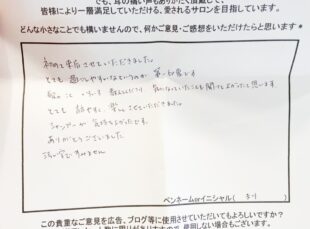 でも、耳の痛い声もありがたく頂戴して、
皆様により一層満足していただける、愛されるサロンを目指しています。
どんな小さなことでも構いませんので、何かご意見・ご感想をいただけたらと思います＊
初めて来店させていただきました。
とても 話しやすいなというのが 第一印象です
髪のこと いろいろ 教えてくださり、気になっていたことも聞けてよかったと思います
とても 話やすく 楽しくさせていただきました。
シャンプーが 気持ちよかったです。
ありがとうございました
汚い字で すみません
ペンネームorイニシャル（ まり ）
この貴重なご意見を広告、ブログ等に使用させていただいてもよろしいですか？
使用しない場合もございます。